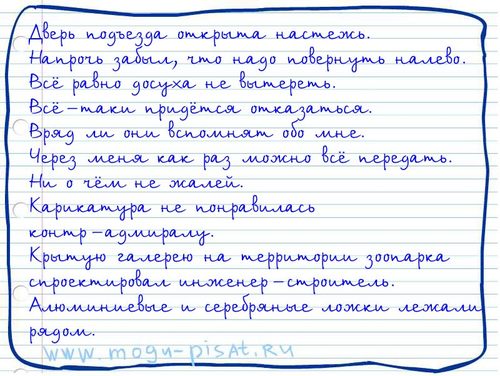 Дверь подъезда открыта настежь.
Напрочь забыл, что надо повернуть налево.
Всё равно досуха не вытереть.
Всё-таки придётся отказаться.
Вряд ли они вспомнят обо мне.
Через меня как раз можно всё передать.
Ни о чём не жалей.
Карикатура не понравилась
контр-адмиралу.
Крытую галерею на территории зоопарка
спроектировал инженер-строитель.
Алюминиевые и серебряные ложки лежали
рядом.
www.mogu-pisat.ru